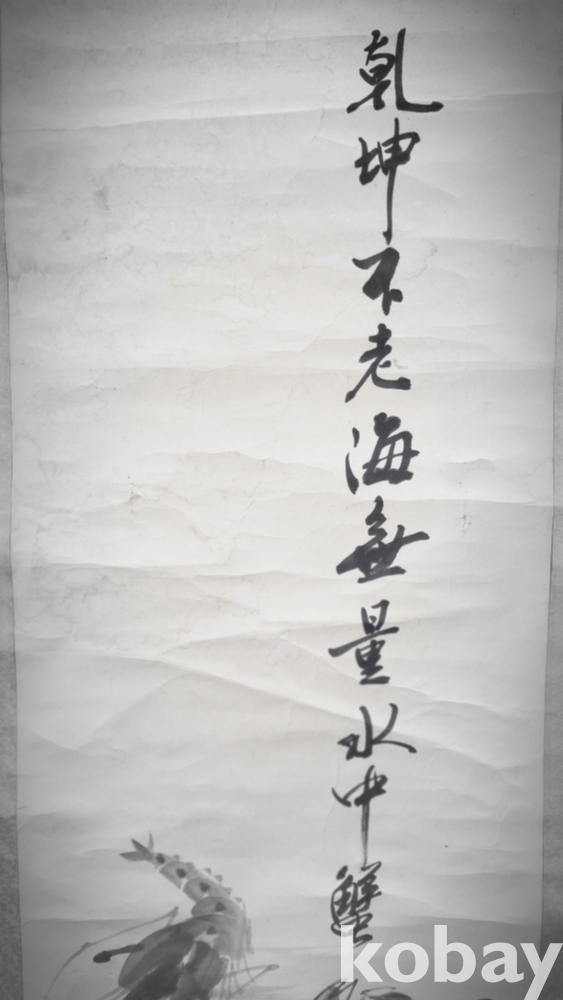 乾坤不老海無量水中蟹
kobay